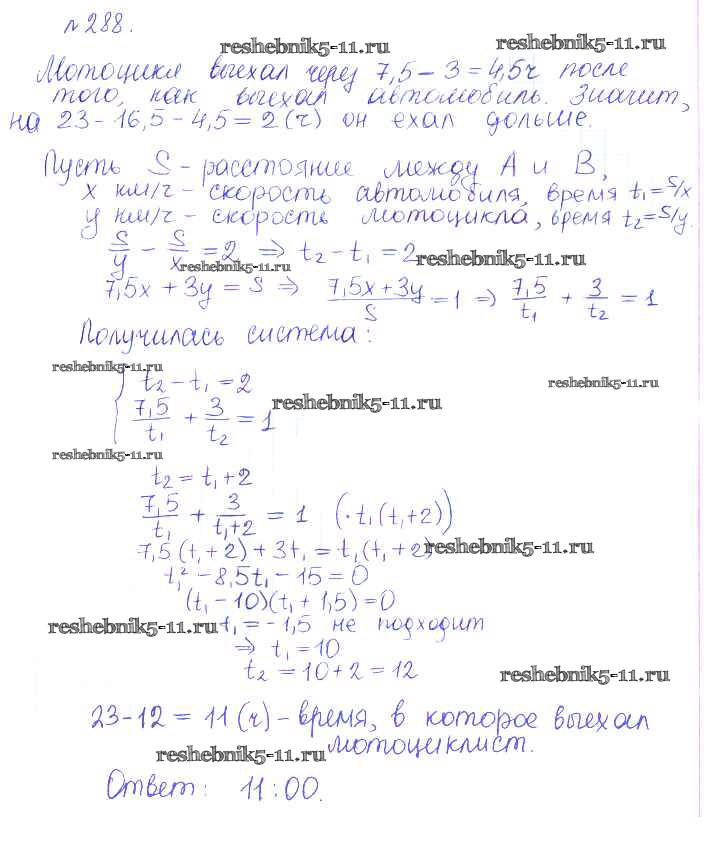 №288.
reshebnik5-11.ru
reshebnik5-11.ru
Мотоцикл выехал через 7,5 - 3 = 4,5ч после
того, как выехал автомобиль. Значит,
на 23 - 16,5 - 4,5 = 2 (ч) он ехал дольше.
Пусть S - расстояние между А и В,
x км/ч - скорость автомобиля, время t₁ = S/x
y км/ч - скорость мотоцикла, время t₂ = S/y.
S/y - S/x = 2 ⇒ t₂ - t₁ = 2
reshebnik5-11.ru
reshebnik5-11.ru
7,5x + 3y = S ⇒ (7,5x + 3y)/S = 1 ⇒ 7,5/t₁ + 3/t₂ = 1
Получилась система:
reshebnik5-11.ru
t₂ - t₁ = 2
reshebnik5-11.ru
7,5/t₁ + 3/t₂ = 1
reshebnik5-11.ru
reshebnik5-11.ru
t₂ = t₁ + 2
7,5/t₁ + 3/(t₁+2) = 1 (· t₁(t₁+2))
7,5(t₁+2) + 3t₁ = t₁(t₁+2)
reshebnik5-11.ru
t₁² - 8,5t₁ - 15 = 0
(t₁ - 10)(t₁ + 1,5) = 0
reshebnik5-11.ru
t₁ = -1,5 не подходит
⇒ t₁ = 10
t₂ = 10 + 2 = 12
reshebnik5-11.ru
23 - 12 = 11 (ч) - время, в которое выехал
мотоциклист.
reshebnik5-11.ru
Ответ: 11:00.